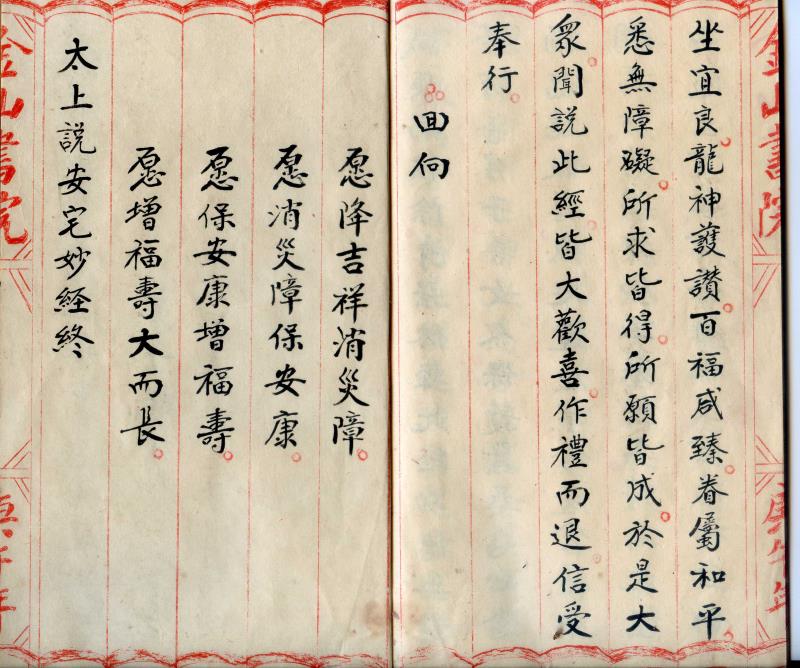 金山書院
庚午年
坐宜良。龍神護讃。百福咸臻。眷屬和平。
悉無障礙。所求皆得。所願皆成。於是大
眾。聞說此經。皆大歡喜。作禮而退。信受
奉行。
回向
愿降吉祥消災障。
愿消災障保安康。
愿保安康增福壽。
愿增福壽大而長。
太上說安宅妙経終
金山書院
庚午年